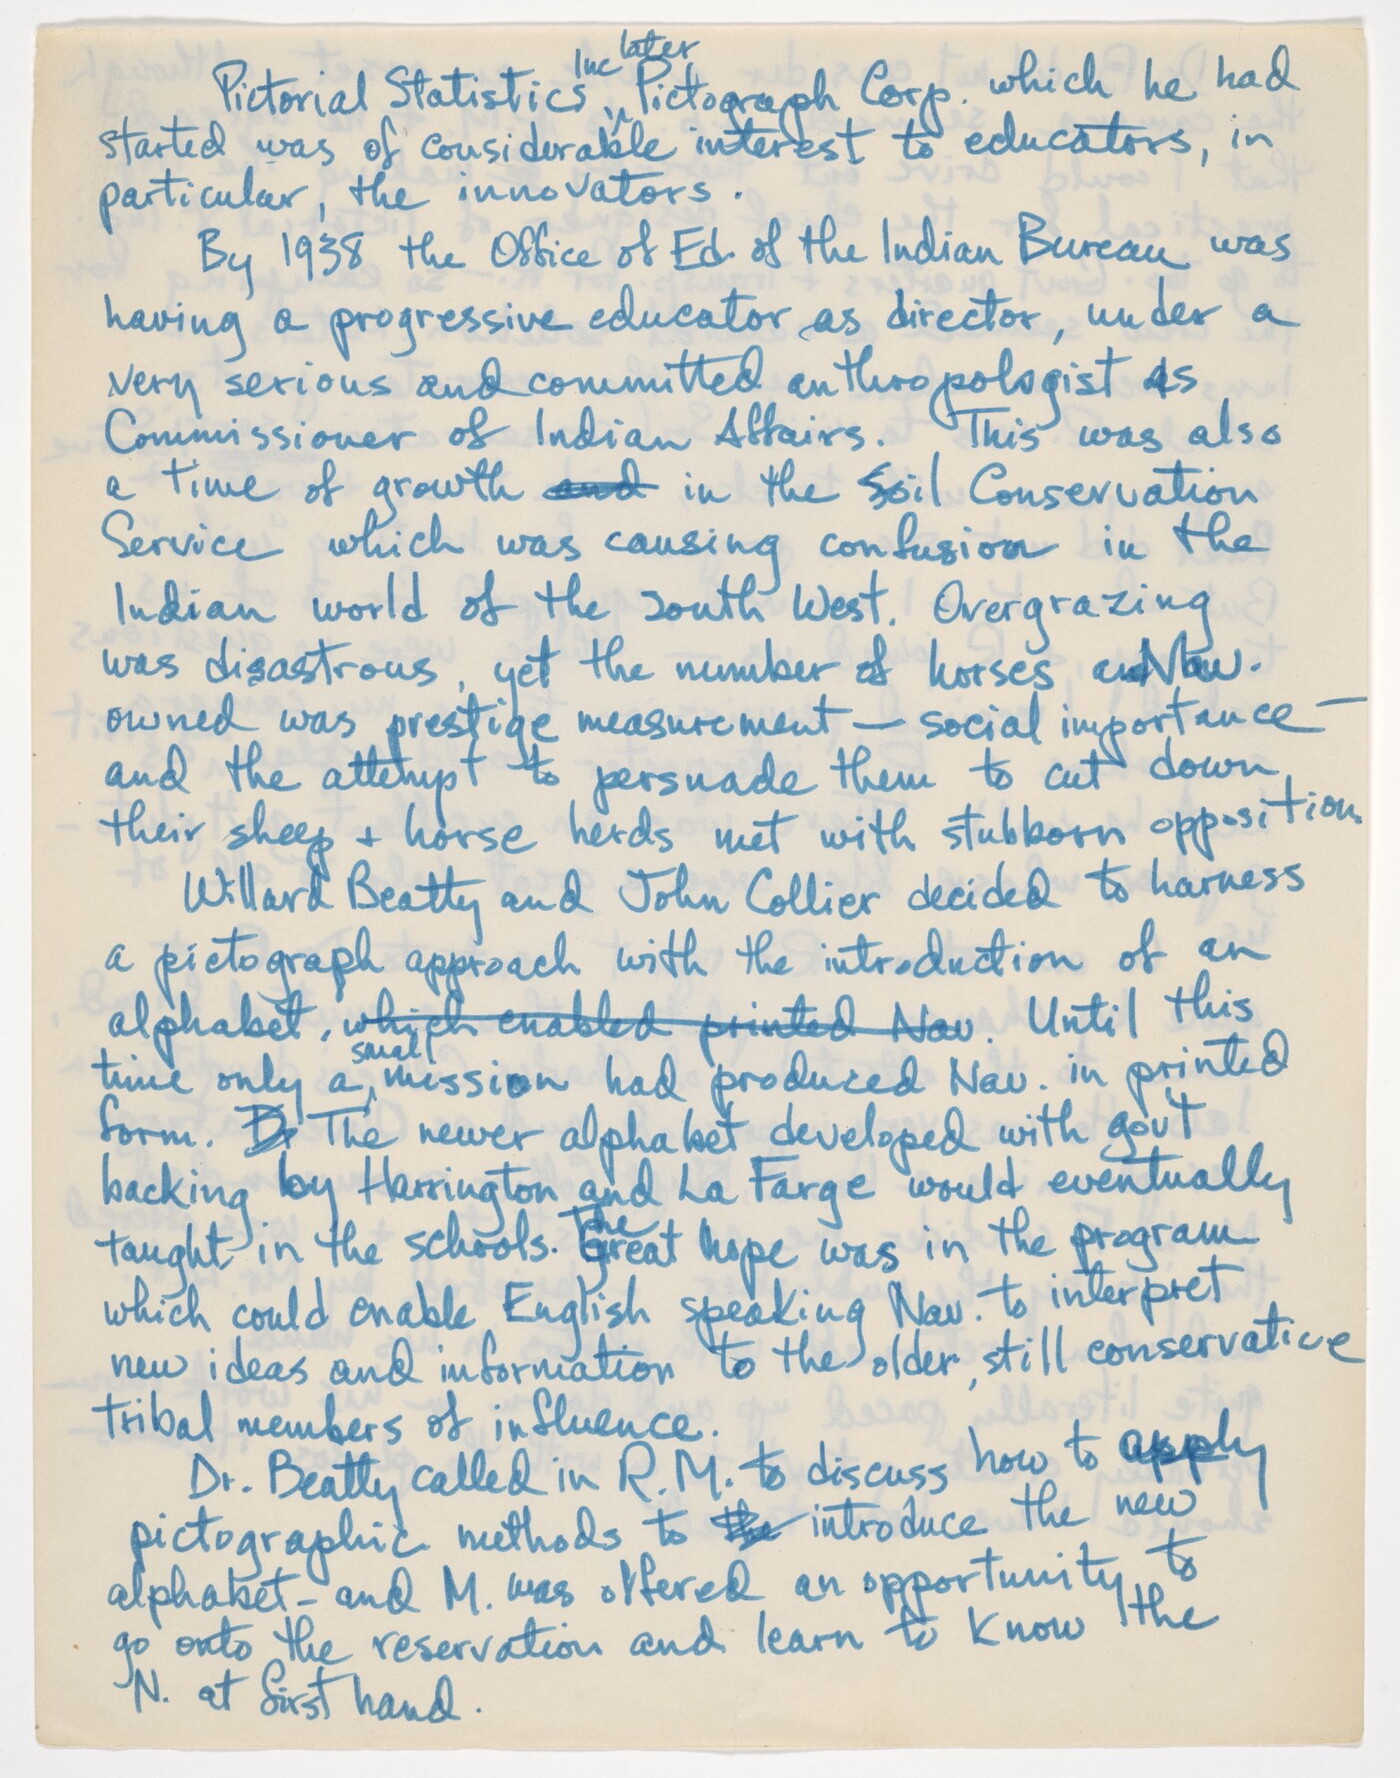 Pictorial Statistics Inc, later Pictograph Corp. which he had
started was of considerable interest to educators, in
particular, the innovators.
By 1938 the Office of Ed. of the Indian Bureau was
having a progressive educator as director, under a
very serious and committed anthropologist as
Commissioner of Indian Affairs. This was also
a time of growth and in the Soil Conservation
Service which was causing confusion in the
Indian world of the South West. Overgrazing
was disastrous, yet the number of horses a Nav.
owned was prestige measurement — social importance —
and the attempt to persuade them to cut down
their sheep + horse herds met with stubborn opposition.
Willard Beatty and John Collier decided to harness
a pictograph approach with the introduction of an
alphabet, which enabled printed Nav. Until this
time only a small mission had produced Nav. in printed
form. Dr The newer alphabet developed with gov't
backing by Harrington and La Farge would eventually
taught in the schools. The Great hope was in the program
which could enable English speaking Nav. to interpret
new ideas and information to the older, still conservative
tribal members of influence.
Dr. Beatty called in R.M. to discuss how to apply
pictographic methods to the introduce the new
alphabet - and M. was offered an opportunity to
go onto the reservation and learn to know the
N. at first hand.